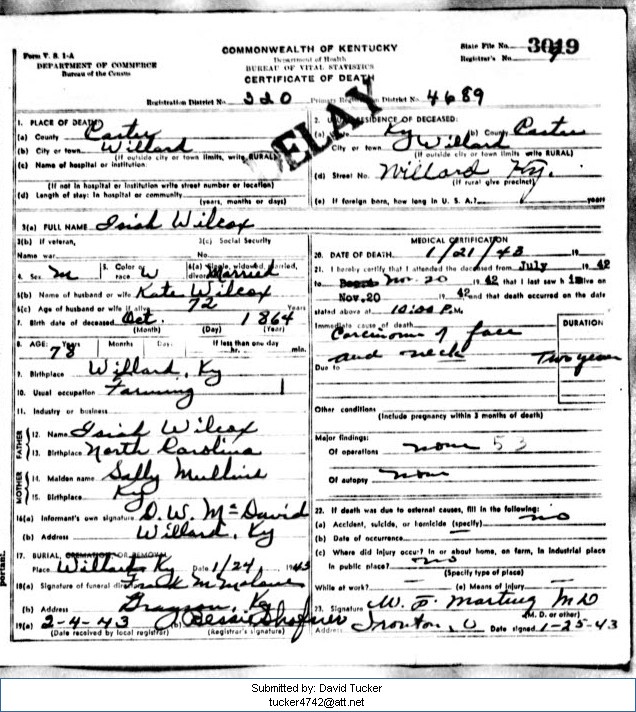 Form V. S. 1-A
DEPARTMENT OF COMMERCE
Bureau of the Census
COMMONWEALTH OF KENTUCKY
Department of Health
BUREAU OF VITAL STATISTICS
CERTIFICATE OF DEATH
State File No. 3019
Registrar's No.
Registration District No. 220 Primary Registration District No. 4689
DELAY
1. PLACE OF DEATH
(a) County Carter
(b) City or town Willard
(If outside city or town limits, write RURAL)
(c) Name of hospital or institution
(If not in hospital or institution write street number or location)
(d) Length of stay: In hospital or community
(years, months or days)
2. USUAL RESIDENCE OF DECEASED:
(a) Ky (b) County Carter
City or town Willard
(If outside city or town limits, write RURAL)
(d) Street No. Willard Ky.
(If rural give precinct)
(e) If foreign born, how long in U. S. A.? years
3(a) FULL NAME Isiah Wilcox
3(b) If veteran, Name war
3(c) Social Security No.
4. Sex M 5. Color or race W 6(a) Single, widowed, married, divorced Married
6(b) Name of husband or wife Kate Wilcox
6(c) Age of husband or wife if alive 72 Years
7. Birth date of deceased Oct. 1 1864
(Month) (Day) (Year)
8. AGE: Years 78 Months Days If less than one day
hr. min.
9. Birthplace Willard, Ky
10. Usual occupation Farming
11. Industry or business
FATHER
12. Name Isiah Wilcox
13. Birthplace North Carolina
MOTHER
14. Maiden name Sally Mullins
15. Birthplace Ky
16(a) Informant's own signature D. W. McDavid
(b) Address Willard, Ky
17. BURIAL, CREMATION OR REMOVAL
Place Willard Ky Date 1/24, 1943
18(a) Signature of funeral director Frank M.
(b) Address Grayson, Ky
19(a) 2-4-43 (b) Bessie
(Date received by local registrar) (Registrar's signature)
portant.
MEDICAL CERTIFICATION
20. DATE OF DEATH 1/21/43 19
21. I hereby certify that I attended the deceased from July 19 42
to Nov. 20 19 42 that I last saw him alive on
Nov. 20 19 42 and that death occurred on the date
stated above at 10:00 P.M.
Immediate cause of death
Carcinoma of face
and neck
DURATION
Two years
Due to
Other conditions
(Include pregnancy within 3 months of death)
Major findings:
Of operations none 53
Of autopsy none
22. If death was due to external causes, fill in the following:
(a) Accident, suicide, or homicide (specify) no
(b) Date of occurrence
(c) Where did injury occur? In or about home, on farm, in industrial place
in public place? no
(Specify type of place)
While at work? (e) Means of injury
23. Signature W. F. Marting MD
(M. D. or other)
Address Ironton, O Date signed 1-25-43
Submitted by: David Tucker
tucker4742@att.net